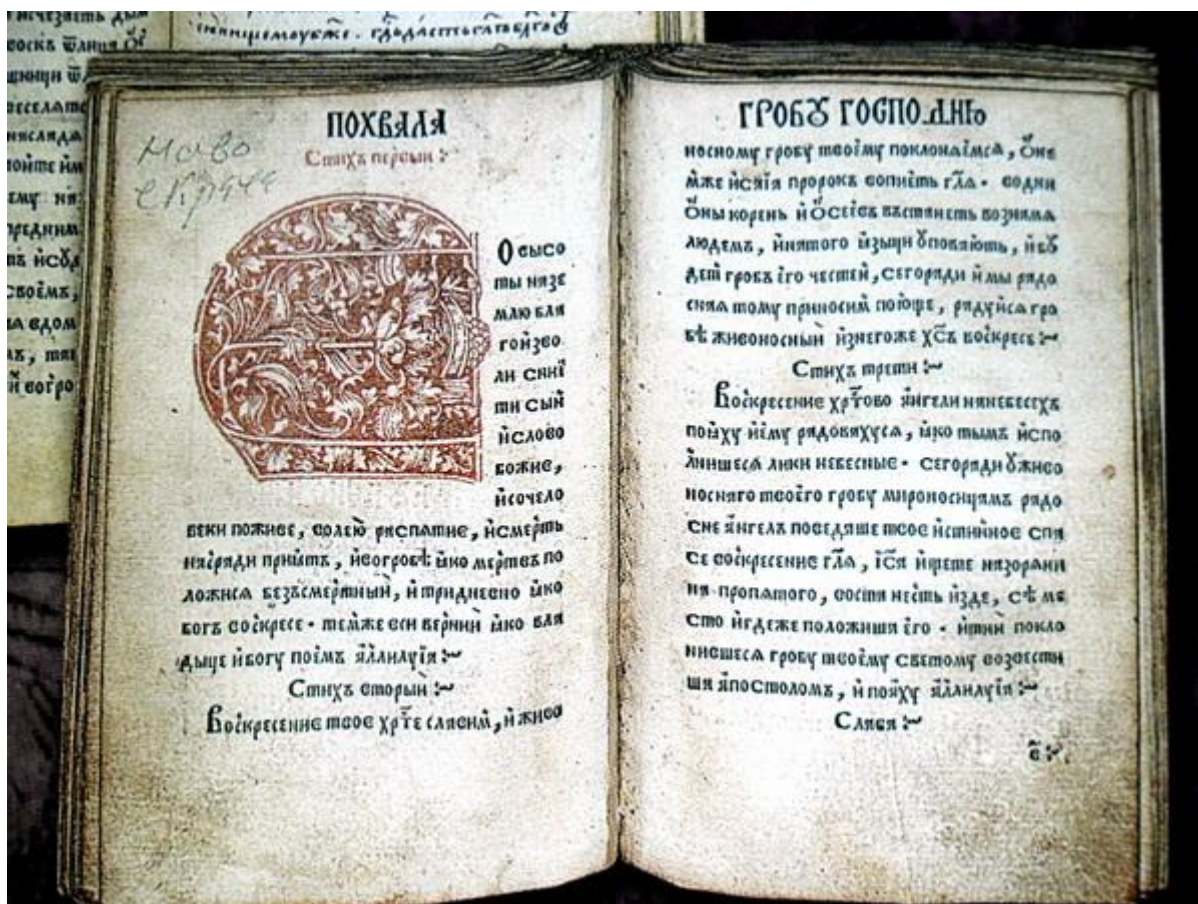 ПОХВАЛА
Стихъ первыи :~
О высо
ты на зе
млю бла
гоизво
ли снѝ
ти сыи
и слово
божие,
и со чело
веки поживе, волею распѧтие, и смерть
нас ради приѧтъ, и во гробѣ ꙗко мертвъ по
ложисѧ безъсмертныи, и тридневно ꙗко
богъ воскресе · тем же вси вернии ꙗко вла
дыце и богу поемъ аллилуїа :~
Стихъ вторыи :~
Воскресение твое хрⷭте славим, и живо
ГРОБꙊ ГОСПОДНЮ
носному гробу твоему поклонѧемсѧ, ѻ не
мже исаїа пророкъ вопиеть гл҃ѧ · во дни
ѻны корень иѻсеѻвъ въстанеть вознима
людемъ, и на того ꙗзыци ꙋповають, и бꙋ
дет гробъ его честен, сего ради и мы радо
снаѧ тому приносим поюще, радуисѧ гро
бѣ живоносныи из него же хс҃ъ воскресъ :~
Стихъ трети :~
Воскресение хрⷭтово ангели на небесехъ
поꙗху и ему радовахусѧ, ꙗко тымъ испо
лнишесѧ лики небесные · сего ради ꙋ живо
носнаго твоего гробу мироносицамъ радо
сне ангелъ поведаше твое истинное спа
се воскресение гл҃ѧ, іс҃а ищете назорани
на пропѧтого, воста несть зде, сѣ ме
сто и где же положиша его · и тии покло
нившесѧ гробу твоему светому возвести
ша апостоломъ, и поꙗху аллилуїа :~
Слава :~
є҃ :~